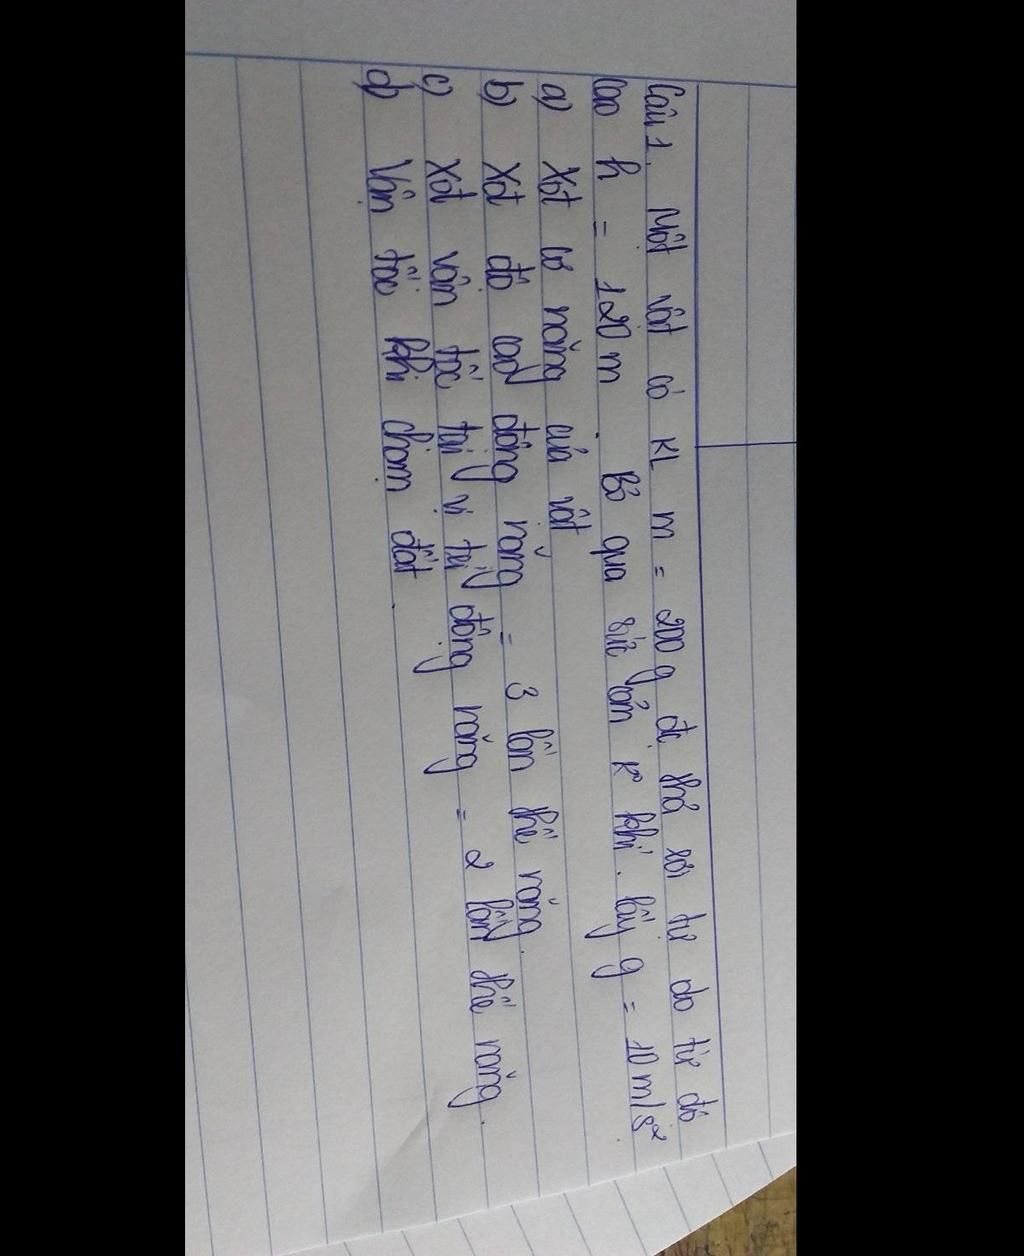 Câu 1. Một vật có KL m = 200 g đc thả rơi tự do từ độ
cao h = 120 m. Bỏ qua sức cản K° khí. lấy g = 10 m/s²
a) Xđ cơ năng của vật
b) Xđ độ cao động năng = 3 lần thế năng.
c) Xđ vận tốc tại vị trí động năng = 2 lần thế năng.
d) Vận tốc khi chạm đất.